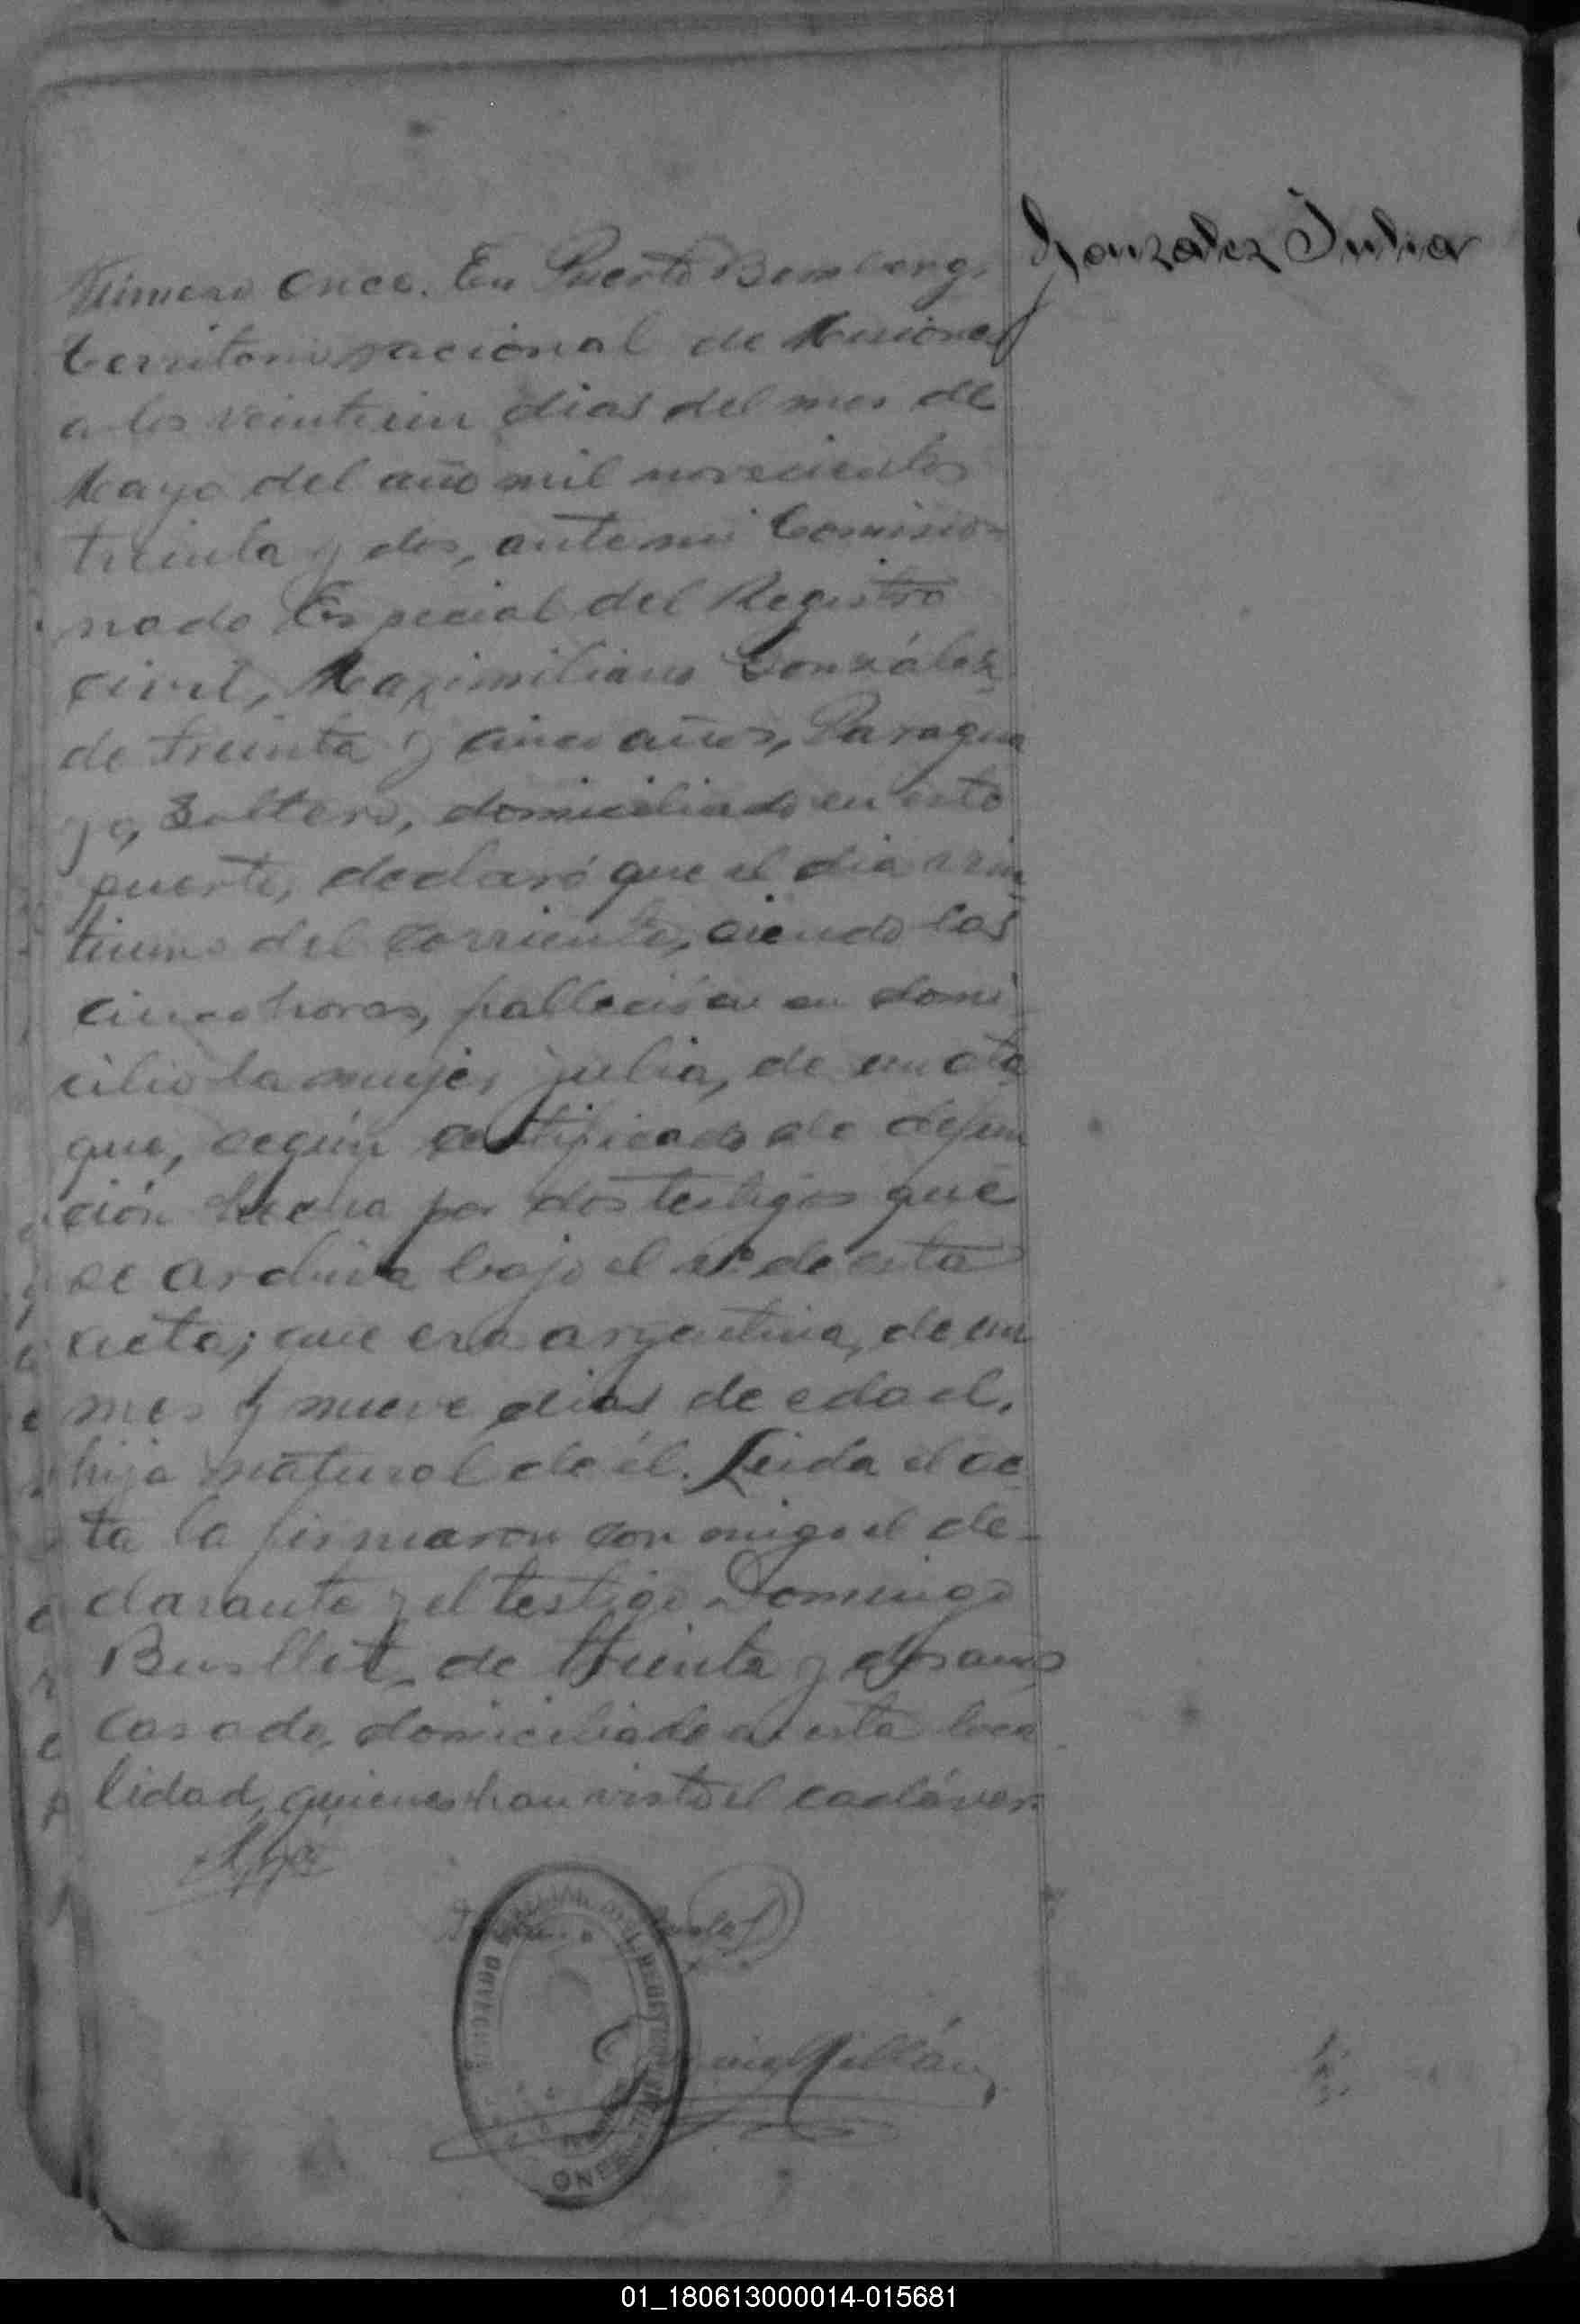 Gonzalez Julia
Número once. En Puerto Bemberg,
territorio nacional de Misiones
a los veintiun dias del mes de
Mayo del año mil novecientos
treinta y dos, ante mi Comisio-
nado Especial del Registro
civil, Maximiliano González
de treinta y cinco años, Paragua
yo, soltero, domiciliado en este
puerto, declaró que el dia vein
tiuno del corriente, siendo las
cinco horas, falleció en su domi
cilio la mujer Julia, de un ata
que, según certificado de defun
ción hecha por dos testigos que
se archiva bajo el nº de esta
acta; que era argentina, de un
mes y nueve dias de edad,
hija natural de él. Leida el ac
ta la firmaron con migo el de-
clarante y el testigo Domingo
de treinta y dos años
casado, domiciliado en esta loca
lidad, quienes han visto el cadáver.
01_180613000014-015681